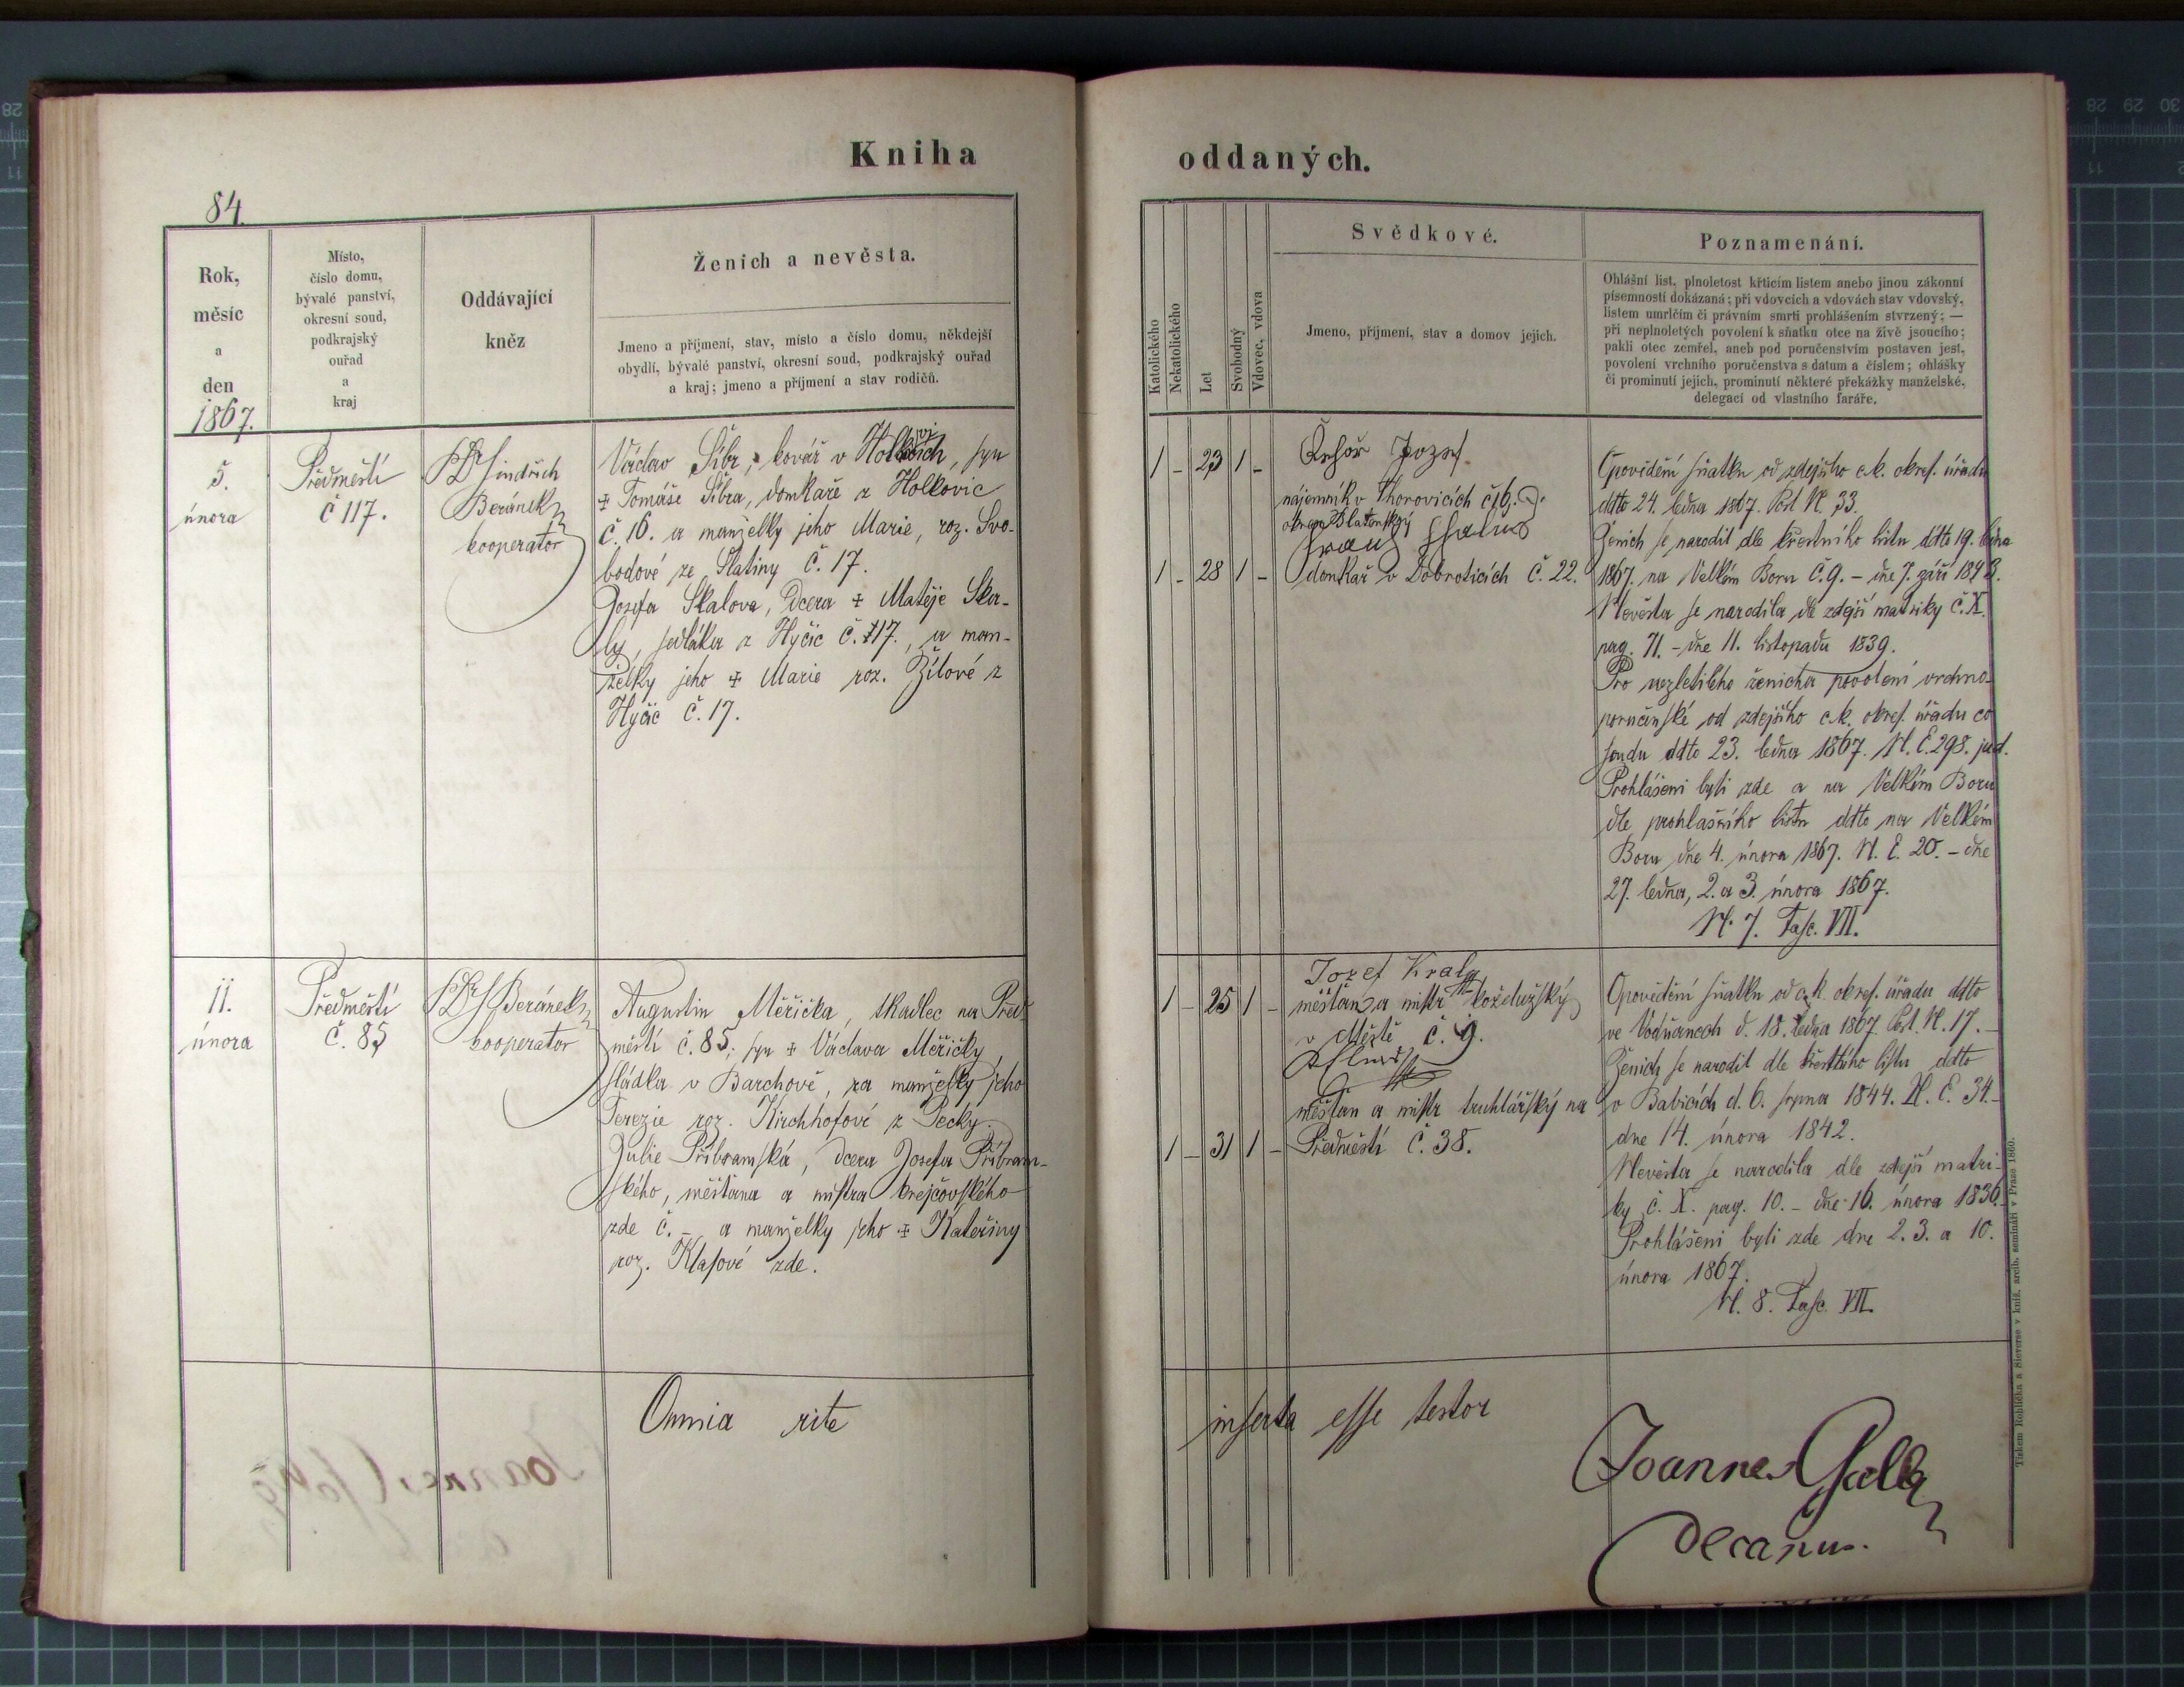 Kniha oddaných.
84.
Rok,
měsíc
a
den
1867.
Místo,
číslo domu,
bývalé panství,
okresní soud,
podkrajský
ouřad
a
kraj
Oddávající
kněz
Ženich a nevěsta.
Jmeno a příjmení, stav, místo a číslo domu, někdejší
obydlí, bývalé panství, okresní soud, podkrajský ouřad
a kraj; jmeno a příjmení a stav rodičů.
Katolického
Nekatolického
Let
Svobodný
Vdovec, vdova
Svědkové.
Jmeno, příjmení, stav a domov jejich.
Poznamenání.
Ohlášní list, plnoletost křticím listem anebo jinou zákonní
písemností dokázaná; při vdovcích a vdovách stav vdovský,
listem umrlčím či právním smrti prohlášením stvrzený; —
při neplnoletých povolení k sňatku otce na živě jsoucího;
pakli otec zemřel, aneb pod poručenstvím postaven jest,
povolení vrchního poručenstva s datum a číslem; ohlášky
či prominutí jejich, prominutí některé překážky manželské,
delegací od vlastního faráře.
5.
února
Předměstí
č 117.
Jindřich
Beránek
kooperator
Václav Šíbr, kovář v, syn
+ Tomáše Šíbra, domkaře z Holkovic
č. 16. a manželky jeho Marie, roz. Svo-
bodové ze Slatiny č. 17.
Josefa Skalova, dcera + Matěje Ska-
ly, sedláka z Hyčic č. 17., a man-
želky jeho + Marie roz. Žílové z
Hyčic č. 17.
1 - 23 1 -
Jozef
nájemník v Thorovicích č 16.
okres Blatenský
1 - 28 1 - domkař v Dobroticích č. 22.
Opovědění sňatku od zdejšího c.k. okres. úřadu
ddto 24. ledna 1867. Post N. 33.
Ženich se narodil dle křestního listu ddto 19. ledna
1867. na Velkém Boru č. 9. - dne 7. září 1843.
Nevěsta se narodila dle zdejší matriky č. X.
pag. 71. - dne 11. listopadu 1839.
Pro nezletilého ženicha povolení vrchno-
poručenské od zdejšího c.k. okres. úřadu co
soudu ddto 23. ledna 1867. N. E. 298. jud.
Prohlášeni byli zde a na Velkém Boru
dle prohlašního listu ddto na Velkém
Boru dne 4. února 1867. N. E. 20. - dne
27. ledna, 2. a 3. února 1867.
N. 7. Fasc. VII.
11.
února
Předměstí
č. 85
Beránek
kooperator
Augustin Měřička, tkadlec na Před-
městí č. 85, syn + Václava Měřičky,
sládka v Barchově, a manželky jeho
Terezie roz. Kirchhofové z Pecky.
Julie Příbramská, dcera Josefa Příbram-
ského, měšťana a mistra krejčovského
zde č. - a manželky jeho + Kateřiny
roz. Klasové zde.
Jozef Kral
1 - 25 1 - měšťan a mistr koželužský
v Městě č. 9.
měšťan a mistr truhlářský na
1 - 31 1 - Předměstí č. 38.
Opovědění sňatku od c.k. okres. úřadu ddto
ve Vodňanech d. 18. ledna 1867 Post. N. 17.
Ženich se narodil dle křestního listu ddto
v Babicích d. 6. srpna 1844. N. E. 34.-
dne 14. února 1842.
Nevěsta se narodila dle zdejší matri-
ky č. X. pag. 10. - dne 16. února 1836.
Prohlášeni byli zde dne 2. 3. a 10.
února 1867.
N. 8. Fasc. VII.
Omnia rite inserta esse testor
Joannes
Decanus.
Tiskem Rohlíčka a Sieverse v kníž. arcib. semináři v Praze 1860.